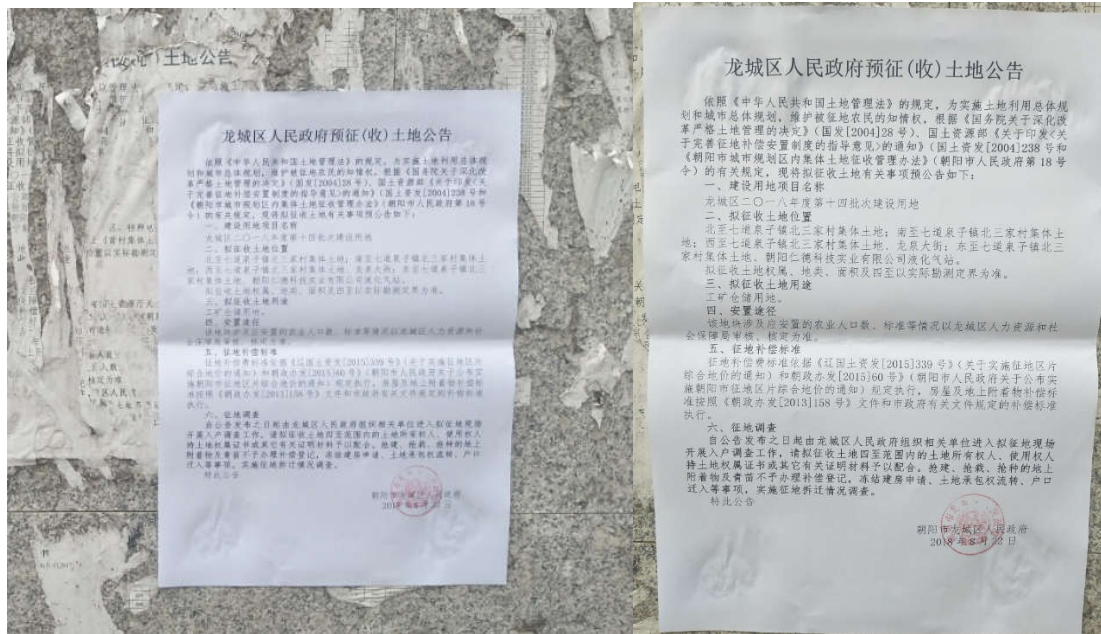 土地公告
龙城区人民政府预征(收)土地公告
依照《中华人民共和国土地管理法》的规定，为实施土地利用总体规
划和城市总体规划，维护被征地农民的知情权，根据《国务院关于深化改
革严格土地管理的决定》(国发[2004]28号)、国土资源部《关于印发<关
于完善征地补偿安置制度的指导意见>的通知》(国土资发[2004]238号和
《朝阳市城市规划区内集体土地征收管理办法》(朝阳市人民政府第18号
令)的有关规定，现将拟征收土地有关事项预公告如下：
一、建设用地项目名称
龙城区二〇一八年度第十四批次建设用地
二、拟征收土地位置
北至七道泉子镇北三家村集体土地；南至七道泉子镇北三家村集体土
地；西至七道泉子镇北三家村集体土地、龙泉大街；东至七道泉子镇北三
家村集体土地、朝阳仁德科技实业有限公司液化气站。
拟征收土地权属、地类、面积及四至以实际勘测定界为准。
三、拟征收土地用途
工矿仓储用地。
四、安置途径
该地块涉及应安置的农业人口数、标准等情况以龙城区人力资源和社
会保障局审核、核定为准。
五、征地补偿标准
征地补偿费标准依据《辽国土资发[2015]339号》(关于实施征地区片
综合地价的通知)和朝政办发[2015]60号》(朝阳市人民政府关于公布实
施朝阳市征地区片综合地价的通知)规定执行，房屋及地上附着物补偿标
准按照《朝政办发[2013]158号》文件和市政府有关文件规定的补偿标准
执行。
六、征地调查
自公告发布之日起由龙城区人民政府组织相关单位进入拟征地现场
开展入户调查工作，请拟征收土地四至范围内的土地所有权人、使用权人
持土地权属证书或其它有关证明材料予以配合。抢建、抢栽、抢种的地上
附着物及青苗不予办理补偿登记，冻结建房申请、土地承包权流转、户口
迁入等事项，实施征地拆迁情况调查。
特此公告
朝阳市龙城区人民政府
2018年8月22日
龙城区人民政府预征(收)土地公告
依照《中华人民共和国土地管理法》的规定，为实施土地利用总体规
划和城市总体规划，维护被征地农民的知情权，根据《国务院关于深化改
革严格土地管理的决定》(国发[2004]28号)、国土资源部《关于印发<关
于完善征地补偿安置制度的指导意见>的通知》(国土资发[2004]238号和
《朝阳市城市规划区内集体土地征收管理办法》(朝阳市人民政府第18号
令)的有关规定，现将拟征收土地有关事项预公告如下：
一、建设用地项目名称
龙城区二〇一八年度第十四批次建设用地
二、拟征收土地位置
北至七道泉子镇北三家村集体土地；南至七道泉子镇北三家村集体土
地；西至七道泉子镇北三家村集体土地、龙泉大街；东至七道泉子镇北三
家村集体土地、朝阳仁德科技实业有限公司液化气站。
拟征收土地权属、地类、面积及四至以实际勘测定界为准。
三、拟征收土地用途
工矿仓储用地。
四、安置途径
该地块涉及应安置的农业人口数、标准等情况以龙城区人力资源和社
会保障局审核、核定为准。
五、征地补偿标准
征地补偿费标准依据《辽国土资发[2015]339号》(关于实施征地区片
综合地价的通知)和朝政办发[2015]60号》(朝阳市人民政府关于公布实
施朝阳市征地区片综合地价的通知)规定执行，房屋及地上附着物补偿标
准按照《朝政办发[2013]158号》文件和市政府有关文件规定的补偿标准
执行。
六、征地调查
自公告发布之日起由龙城区人民政府组织相关单位进入拟征地现场
开展入户调查工作，请拟征收土地四至范围内的土地所有权人、使用权人
持土地权属证书或其它有关证明材料予以配合。抢建、抢栽、抢种的地上
附着物及青苗不予办理补偿登记，冻结建房申请、土地承包权流转、户口
迁入等事项，实施征地拆迁情况调查。
特此公告
朝阳市龙城区人民政府
2018年8月22日